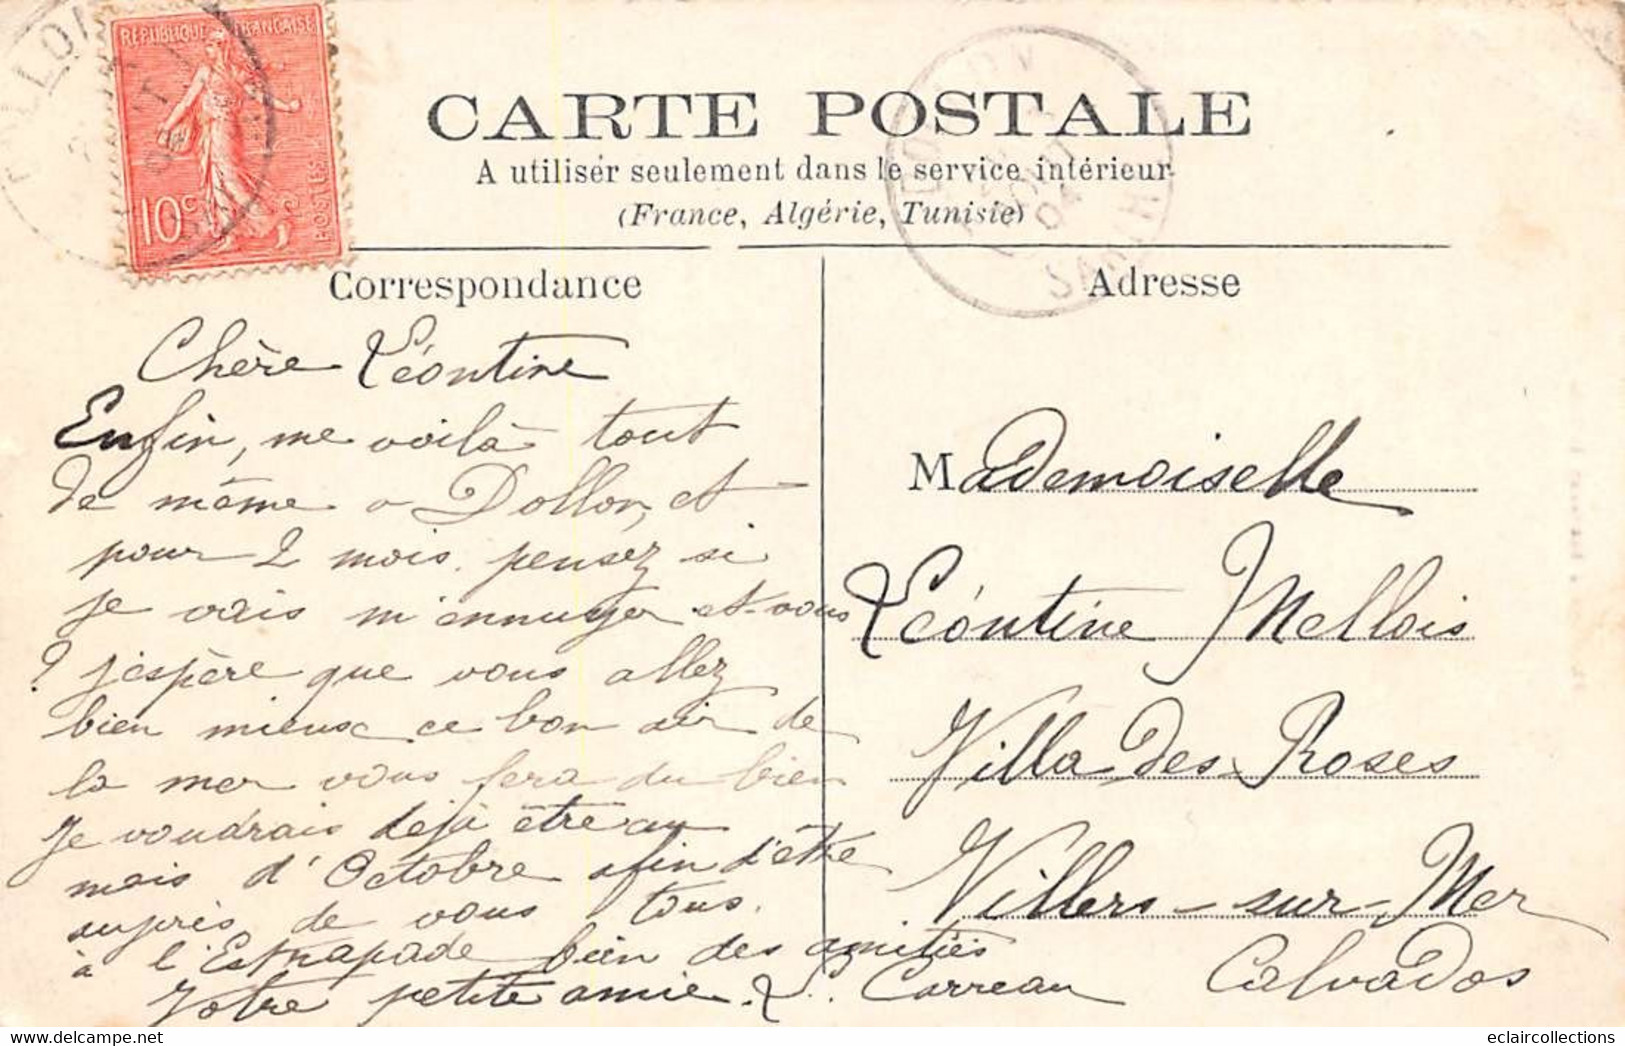 RÉPUBLIQUE FRANÇAISE
10c
POSTES
CARTE POSTALE
A utiliser seulement dans le service intérieur
(France, Algérie, Tunisie)
DOLLON
AOUT
04
SARTHE
Correspondance
Chère Léontine
Enfin, me voilà tout
de même a Dollon, et
pour 2 mois. pensez si
je vais m'ennuyer et vous
? j'espère que vous allez
bien mieux ce bon air de
la mer vous fera du bien
Je voudrais déjà être au
mois d'Octobre afin d'être
auprès de vous tous.
à l'Estrapade bien des amitiés
Votre petite amie. L. Carreau
Adresse
Mademoiselle
Léontine Mellois
Villa des Roses
Villers-sur-Mer
Calvados
eclaircollections